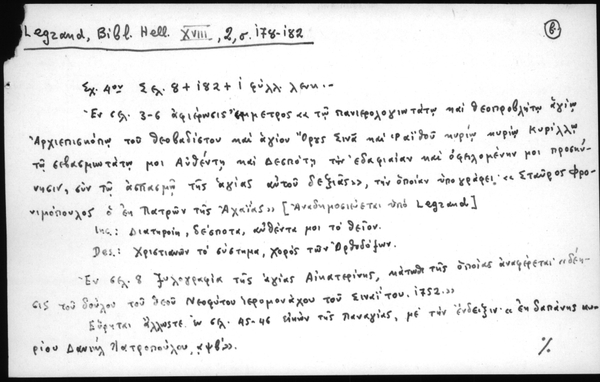 Legrand, Bibl. Hell. XVIII, 2, σ. 178-182
β.
Σχ. 4ον Σελ. 8 + 182 + 1 φύλλ. λευκ. :-
Ἐν σελ. 3-6 ἀφιέρωσις ἔμμετρος «τῷ πανιερολογιωτάτῳ καὶ θεοπροβλήτῳ ἁγίῳ
Ἀρχιεπισκόπῳ τοῦ θεοβαδίστου καὶ ἁγίου Ὄρους Σινᾶ καὶ Ῥαϊθοῦ κυρίῳ κυρίῳ Κυρίλλῳ
τῷ σεβασμιωτάτῳ μοι Αὐθέντῃ καὶ Δεσπότῃ τὴν ἐδαφιαίαν καὶ ὀφειλομένην μοι προσκύ-
νησιν, σὺν τῷ ἀσπασμῷ τῆς ἁγίας αὐτοῦ δεξιᾶς», τὴν ὁποίαν ὑπογράφει «Σταῦρος Φρο-
νιμόπουλος ὁ ἐκ Πατρῶν τῆς Ἀχαΐας» [Ἀναδημοσιεύεται ὑπὸ Legrand]
Inc.: Διατηροίη, δέσποτα, αὐθέντα μοι τὸ θεῖον.
Des.: Χριστιανῶν τὸ σύστημα, χορὸς τῶν Ὀρθοδόξων.
Ἐν σελ. 8 ξυλογραφία τῆς ἁγίας Αἰκατερίνης, κάτωθι τῆς ὁποίας ἀναφέρεται «δέη-
σις τοῦ δούλου τοῦ θεοῦ Νεοφύτου ἱερομονάχου τοῦ Σιναΐτου. 1752.»
Εὕρηται ἄλλωστε ἐν σελ. 45-46 εἰκὼν τῆς Παναγίας, μὲ τὴν ἔνδειξιν «ἐκ δαπάνης κυ-
ρίου Δανιὴλ Ἰατροπούλου, αψβ».
%